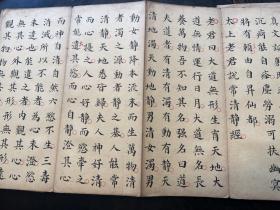 沉痾能自痊塵勞溺可扶幽
太上老君說常清靜經
老君曰大道無形生育天地大
道無情運行日月大道無名長
養萬物吾不知其名强名曰道
大道者有清有濁有動有靜天
清地濁天動地靜男清女濁男
動女靜降本流末而生萬物清
者濁之源動者靜之基人能常
清靜天地悉皆歸夫人神好清
而心擾之人心好靜而慾牽之
常能遣其慾而心自靜澄其心
而神自清自然六慾不生三毒
消滅所以不能者為心未澄慾
未遣也能遣之者內觀其心
心無其心外觀其形形無其形遠
觀其物物無其物